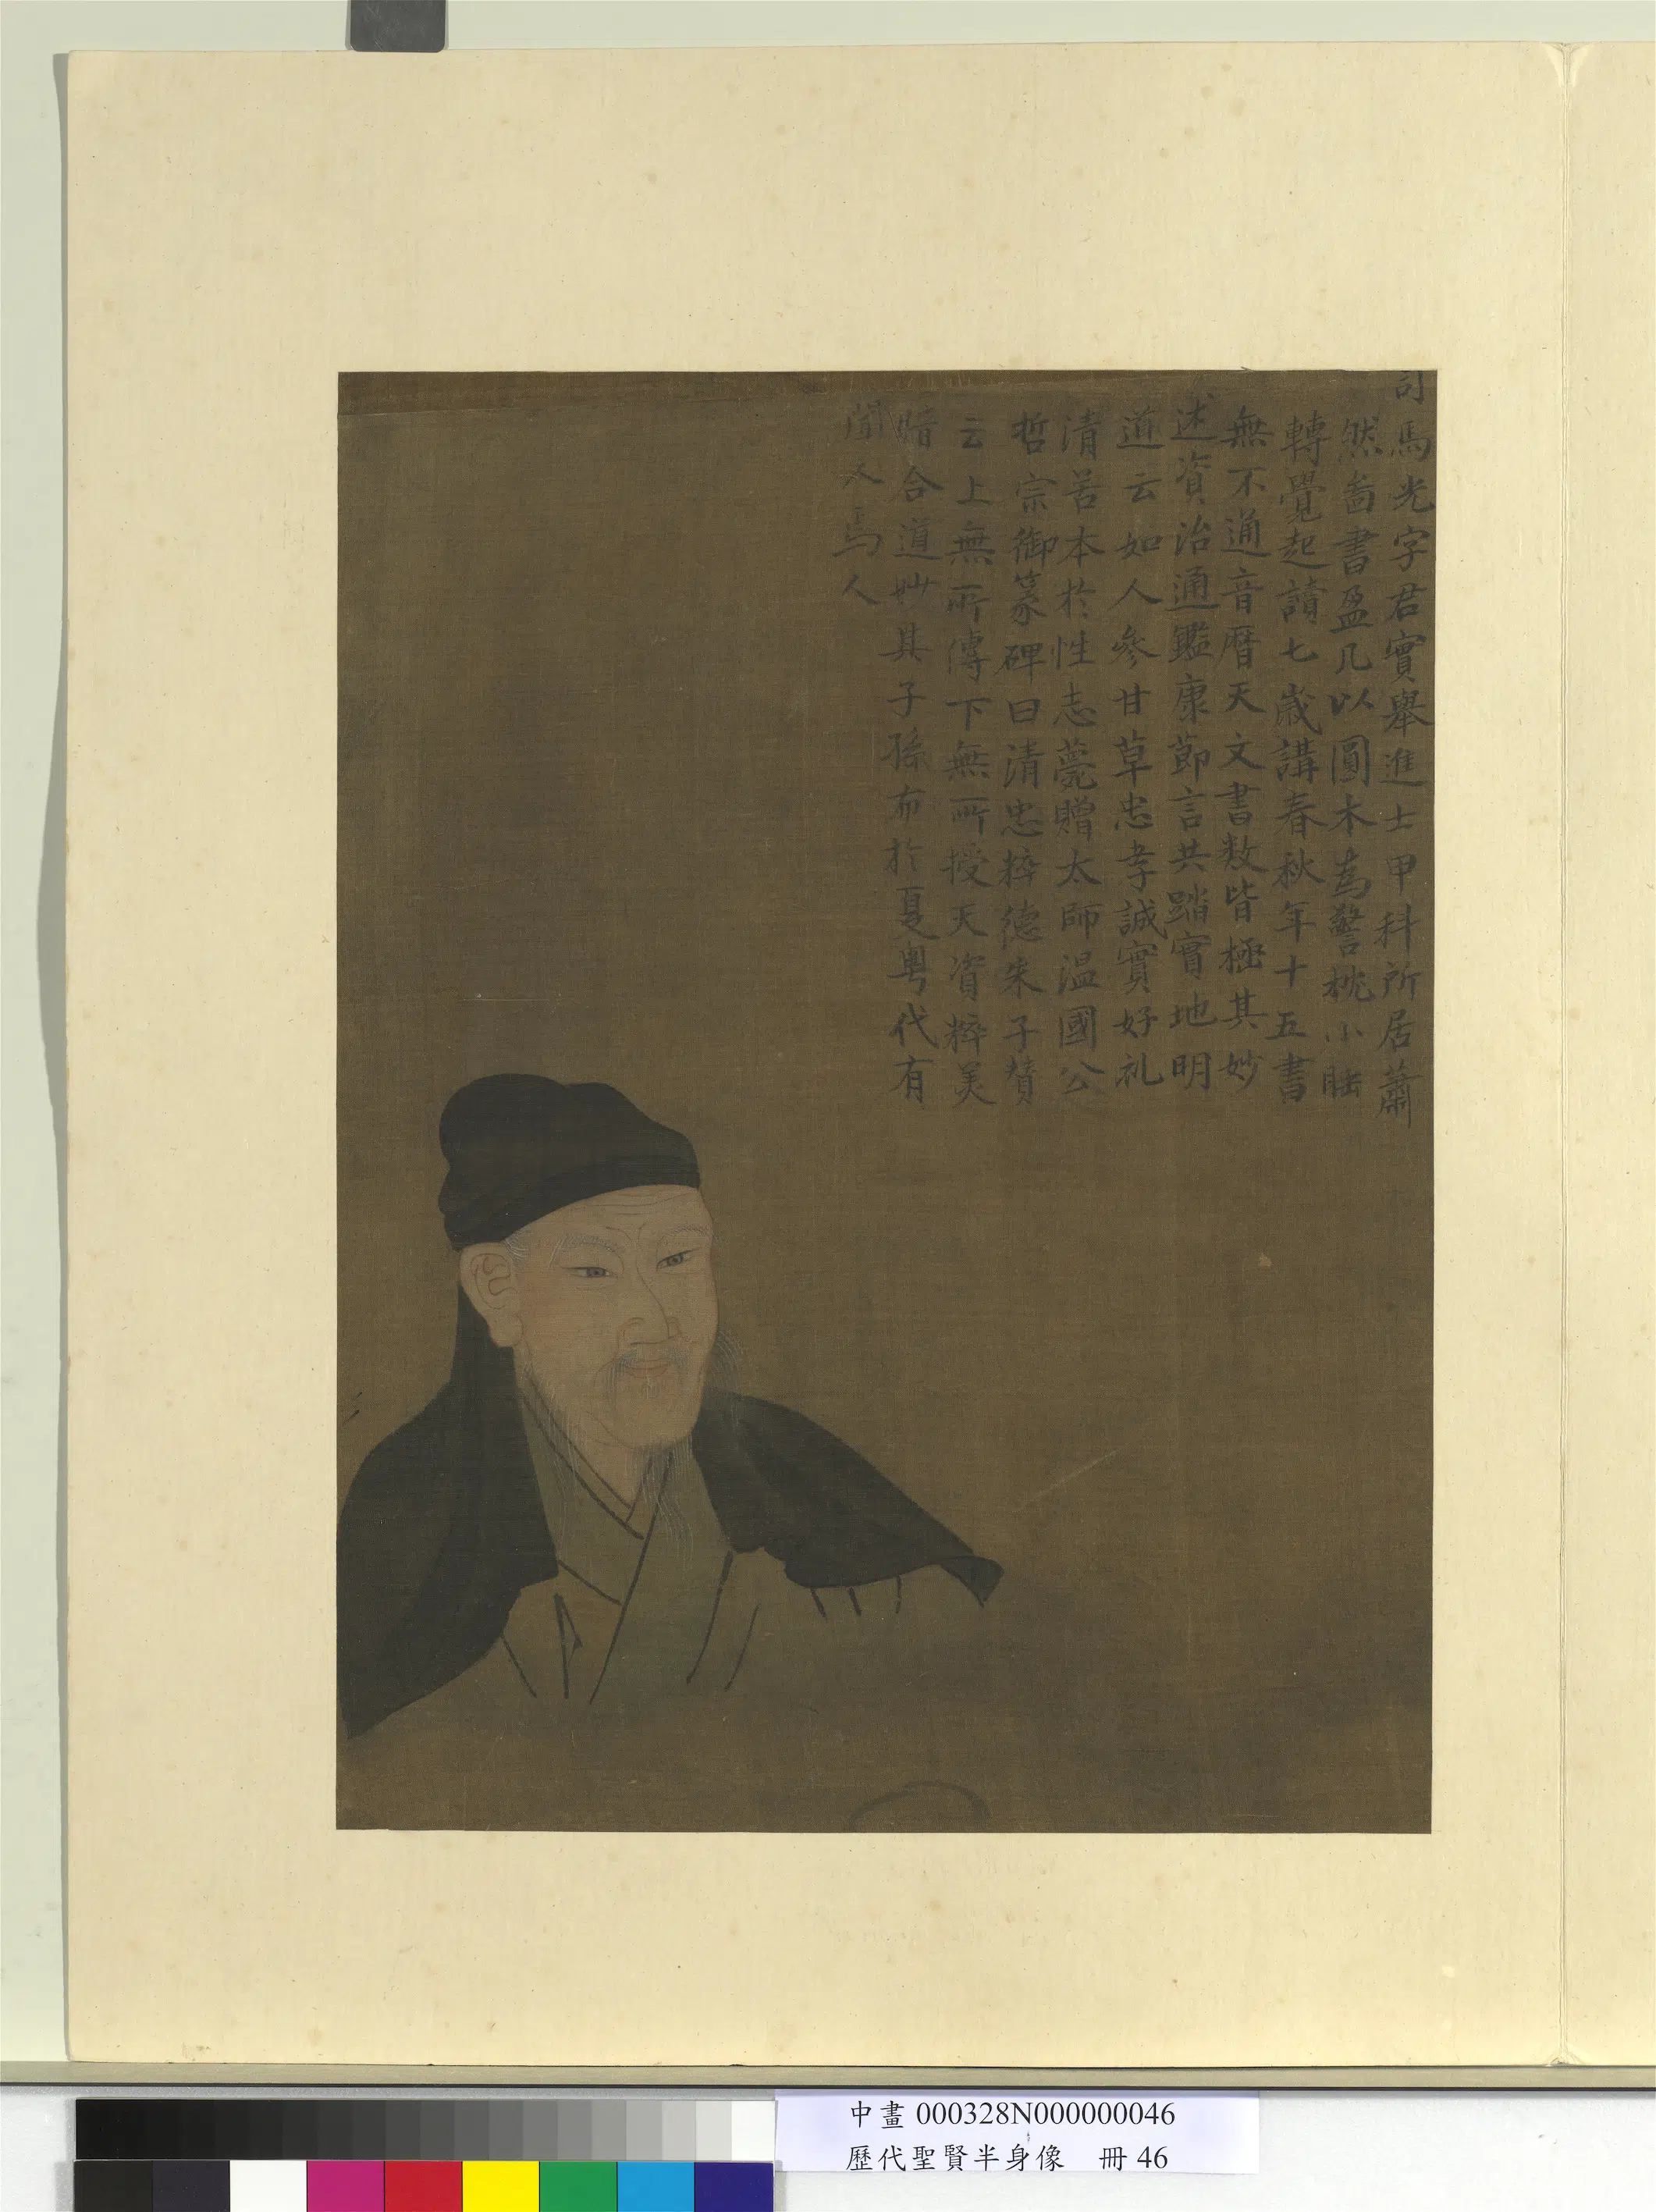 司馬光字君實舉進士甲科所居蕭
然啚書盈几以圓木為警枕小睡
轉覺起讀七歲講春秋年十五書
無不通音曆天文書数皆極其妙
述資治通鑑康節言共踏實地明
道云如人參甘草忠孝誠實好礼
清苦本於性志薨贈太師温國公
哲宗御篆碑曰清忠粹德朱子贊
云上無所傳下無所授天資粹美
暗合道妙其子孫布於夏粤代有
聞人焉人
中畫 000328N000000046
歷代聖賢半身像 冊 46